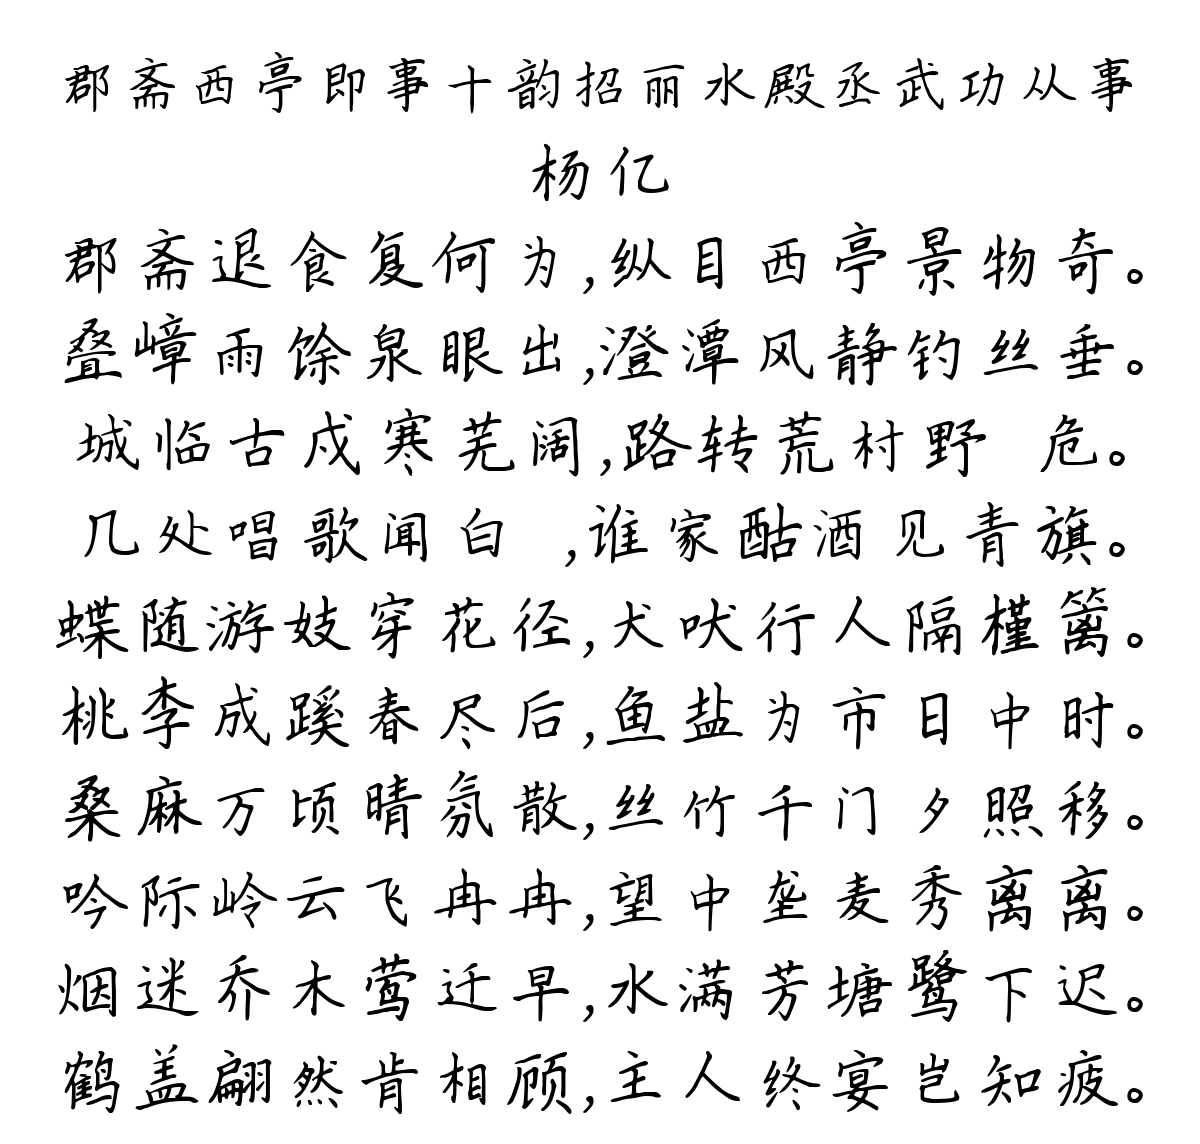 郡斋西亭即事十韵招丽水殿丞武功从事
杨亿
郡斋退食复何为,纵目西亭景物奇。
叠嶂雨馀泉眼出,澄潭风静钓丝垂。
城临古戍寒芜阔,路转荒村野 危。
几处唱歌闻白 ,谁家酤酒见青旗。
蝶随游妓穿花径,犬吠行人隔槿篱。
桃李成蹊春尽后,鱼盐为市日中时。
桑麻万顷晴氛散,丝竹千门夕照移。
吟际岭云飞冉冉,望中垄麦秀离离。
烟迷乔木莺迁早,水满芳塘鹭下迟。
鹤盖翩然肯相顾,主人终宴岂知疲。